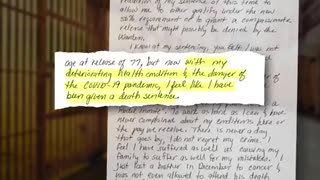 allow me to better qualify under the new
50% requirement or to grant a compassionate
release that might possibly be denied by the
Warden.
I know at my sentencing, you felt I was not
age at release of 77, but now with my
deteriorating health condition & the danger of
the COVID-19 pandemic, I feel like I have
been given a death sentence.
never complained about my conditions here or
the pay we receive. There is never a day
that goes by, I do not regret my crime. I
feel I have suffered as well as causing my
family to suffer as well for my mistakes. I
just lost a brother in December to cancer &
was not even allowed to attend his